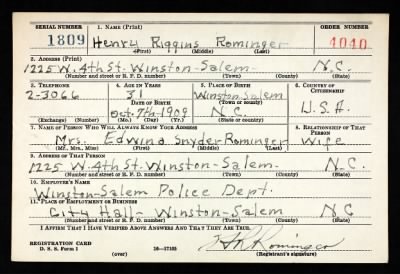 SERIAL NUMBER 1. NAME (Print) ORDER NUMBER
1809 Henry Riggins Rominger 4040
(First) (Middle) (Last)
2. ADDRESS (Print)
1225 W. 4th St. Winston-Salem N.C.
(Number and street or R. F. D. number) (Town) (County) (State)
3. TELEPHONE 4. AGE IN YEARS 5. PLACE OF BIRTH 6. COUNTRY OF CITIZENSHIP
2-3066 31 Winston Salem
DATE OF BIRTH (Town or county)
Oct. 7th 1909 N.C. U.S.A.
(Exchange) (Number) (Mo.) (Day) (Yr.) (State or country)
7. NAME OF PERSON WHO WILL ALWAYS KNOW YOUR ADDRESS 8. RELATIONSHIP OF THAT PERSON
Mrs. Edwina Snyder Rominger Wife
(Mr., Mrs., Miss) (First) (Middle) (Last)
9. ADDRESS OF THAT PERSON
1225 W. 4th St. Winston-Salem N.C.
(Number and street or R. F. D. number) (Town) (County) (State)
10. EMPLOYER'S NAME
Winston-Salem Police Dept.
11. PLACE OF EMPLOYMENT OR BUSINESS
City Hall- Winston-Salem NC
(Number and street or R. F. D. number) (Town) (County) (State)
I AFFIRM THAT I HAVE VERIFIED ABOVE ANSWERS AND THAT THEY ARE TRUE.
REGISTRATION CARD H R Rominger
D. S. S. Form 1 16-17105 (over) (Registrant's signature)